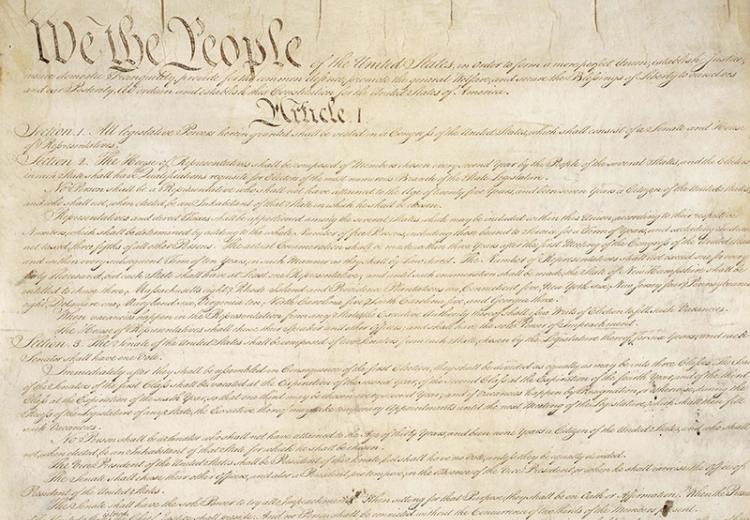 We the People of the United States, in order to form a more perfect Union, establish Justice,
insure domestic Tranquility, provide for the common defence, promote the general Welfare, and secure the Blessings of Liberty to ourselves
and our Posterity, do ordain and establish this Constitution for the United States of America.
Article. I.
Section. 1. All legislative Powers herein granted shall be vested in a Congress of the United States, which shall consist of a Senate and House
of Representatives.
Section. 2. The House of Representatives shall be composed of Members chosen every second Year by the People of the several States, and the Electors
in each State shall have Qualifications requisite for Electors of the most numerous Branch of the State Legislature.
No Person shall be a Representative who shall not have attained to the Age of twenty five Years, and been seven Years a Citizen of the United States,
and who shall not, when elected, be an Inhabitant of that State in which he shall be chosen.
Representatives and direct Taxes shall be apportioned among the several States which may be included within this Union, according to their respective
Numbers, which shall be determined by adding to the whole Number of free Persons, including those bound to Service for a Term of Years, and excluding Indians
not taxed, three fifths of all other Persons. The actual Enumeration shall be made within three Years after the first Meeting of the Congress of the United States,
and within every subsequent Term of ten Years, in such Manner as they shall by Law direct. The Number of Representatives shall not exceed one for every
thirty Thousand, but each State shall have at Least one Representative; and until such enumeration shall be made, the State of New Hampshire shall be
entitled to chuse three, Massachusetts eight, Rhode Island and Providence Plantations one, Connecticut five, New York six, New Jersey four, Pennsylvania
eight, Delaware one, Maryland six, Virginia ten, North Carolina five, South Carolina five, and Georgia three.
When vacancies happen in the Representation from any State, the Executive Authority thereof shall issue Writs of Election to fill such Vacancies.
The House of Representatives shall chuse their Speaker and other Officers; and shall have the sole Power of Impeachment.
Section. 3. The Senate of the United States shall be composed of two Senators from each State, chosen by the Legislature thereof, for six Years; and each
Senator shall have one Vote.
Immediately after they shall be assembled in Consequence of the first Election, they shall be divided as equally as may be into three Classes. The Seats
of the Senators of the first Class shall be vacated at the Expiration of the second Year, of the second Class at the Expiration of the fourth Year, and of the third
Class at the Expiration of the sixth Year, so that one third may be chosen every second Year; and if Vacancies happen by Resignation, or otherwise, during the
Recess of the Legislature of any State, the Executive thereof may make temporary Appointments until the next Meeting of the Legislature, which shall then fill
such Vacancies.
No Person shall be a Senator who shall not have attained to the Age of thirty Years, and been nine Years a Citizen of the United States, and who shall
not, when elected, be an Inhabitant of that State for which he shall be chosen.
The Vice President of the United States shall be President of the Senate, but shall have no Vote, unless they be equally divided.
The Senate shall chuse their other Officers, and also a President pro tempore, in the Absence of the Vice President, or when he shall exercise the Office of
President of the United States.
The Senate shall have the sole Power to try all Impeachments. When sitting for that Purpose, they shall be on Oath or Affirmation. When the President
shall preside: And no Person shall be convicted without the Concurrence of two thirds of the Members present.